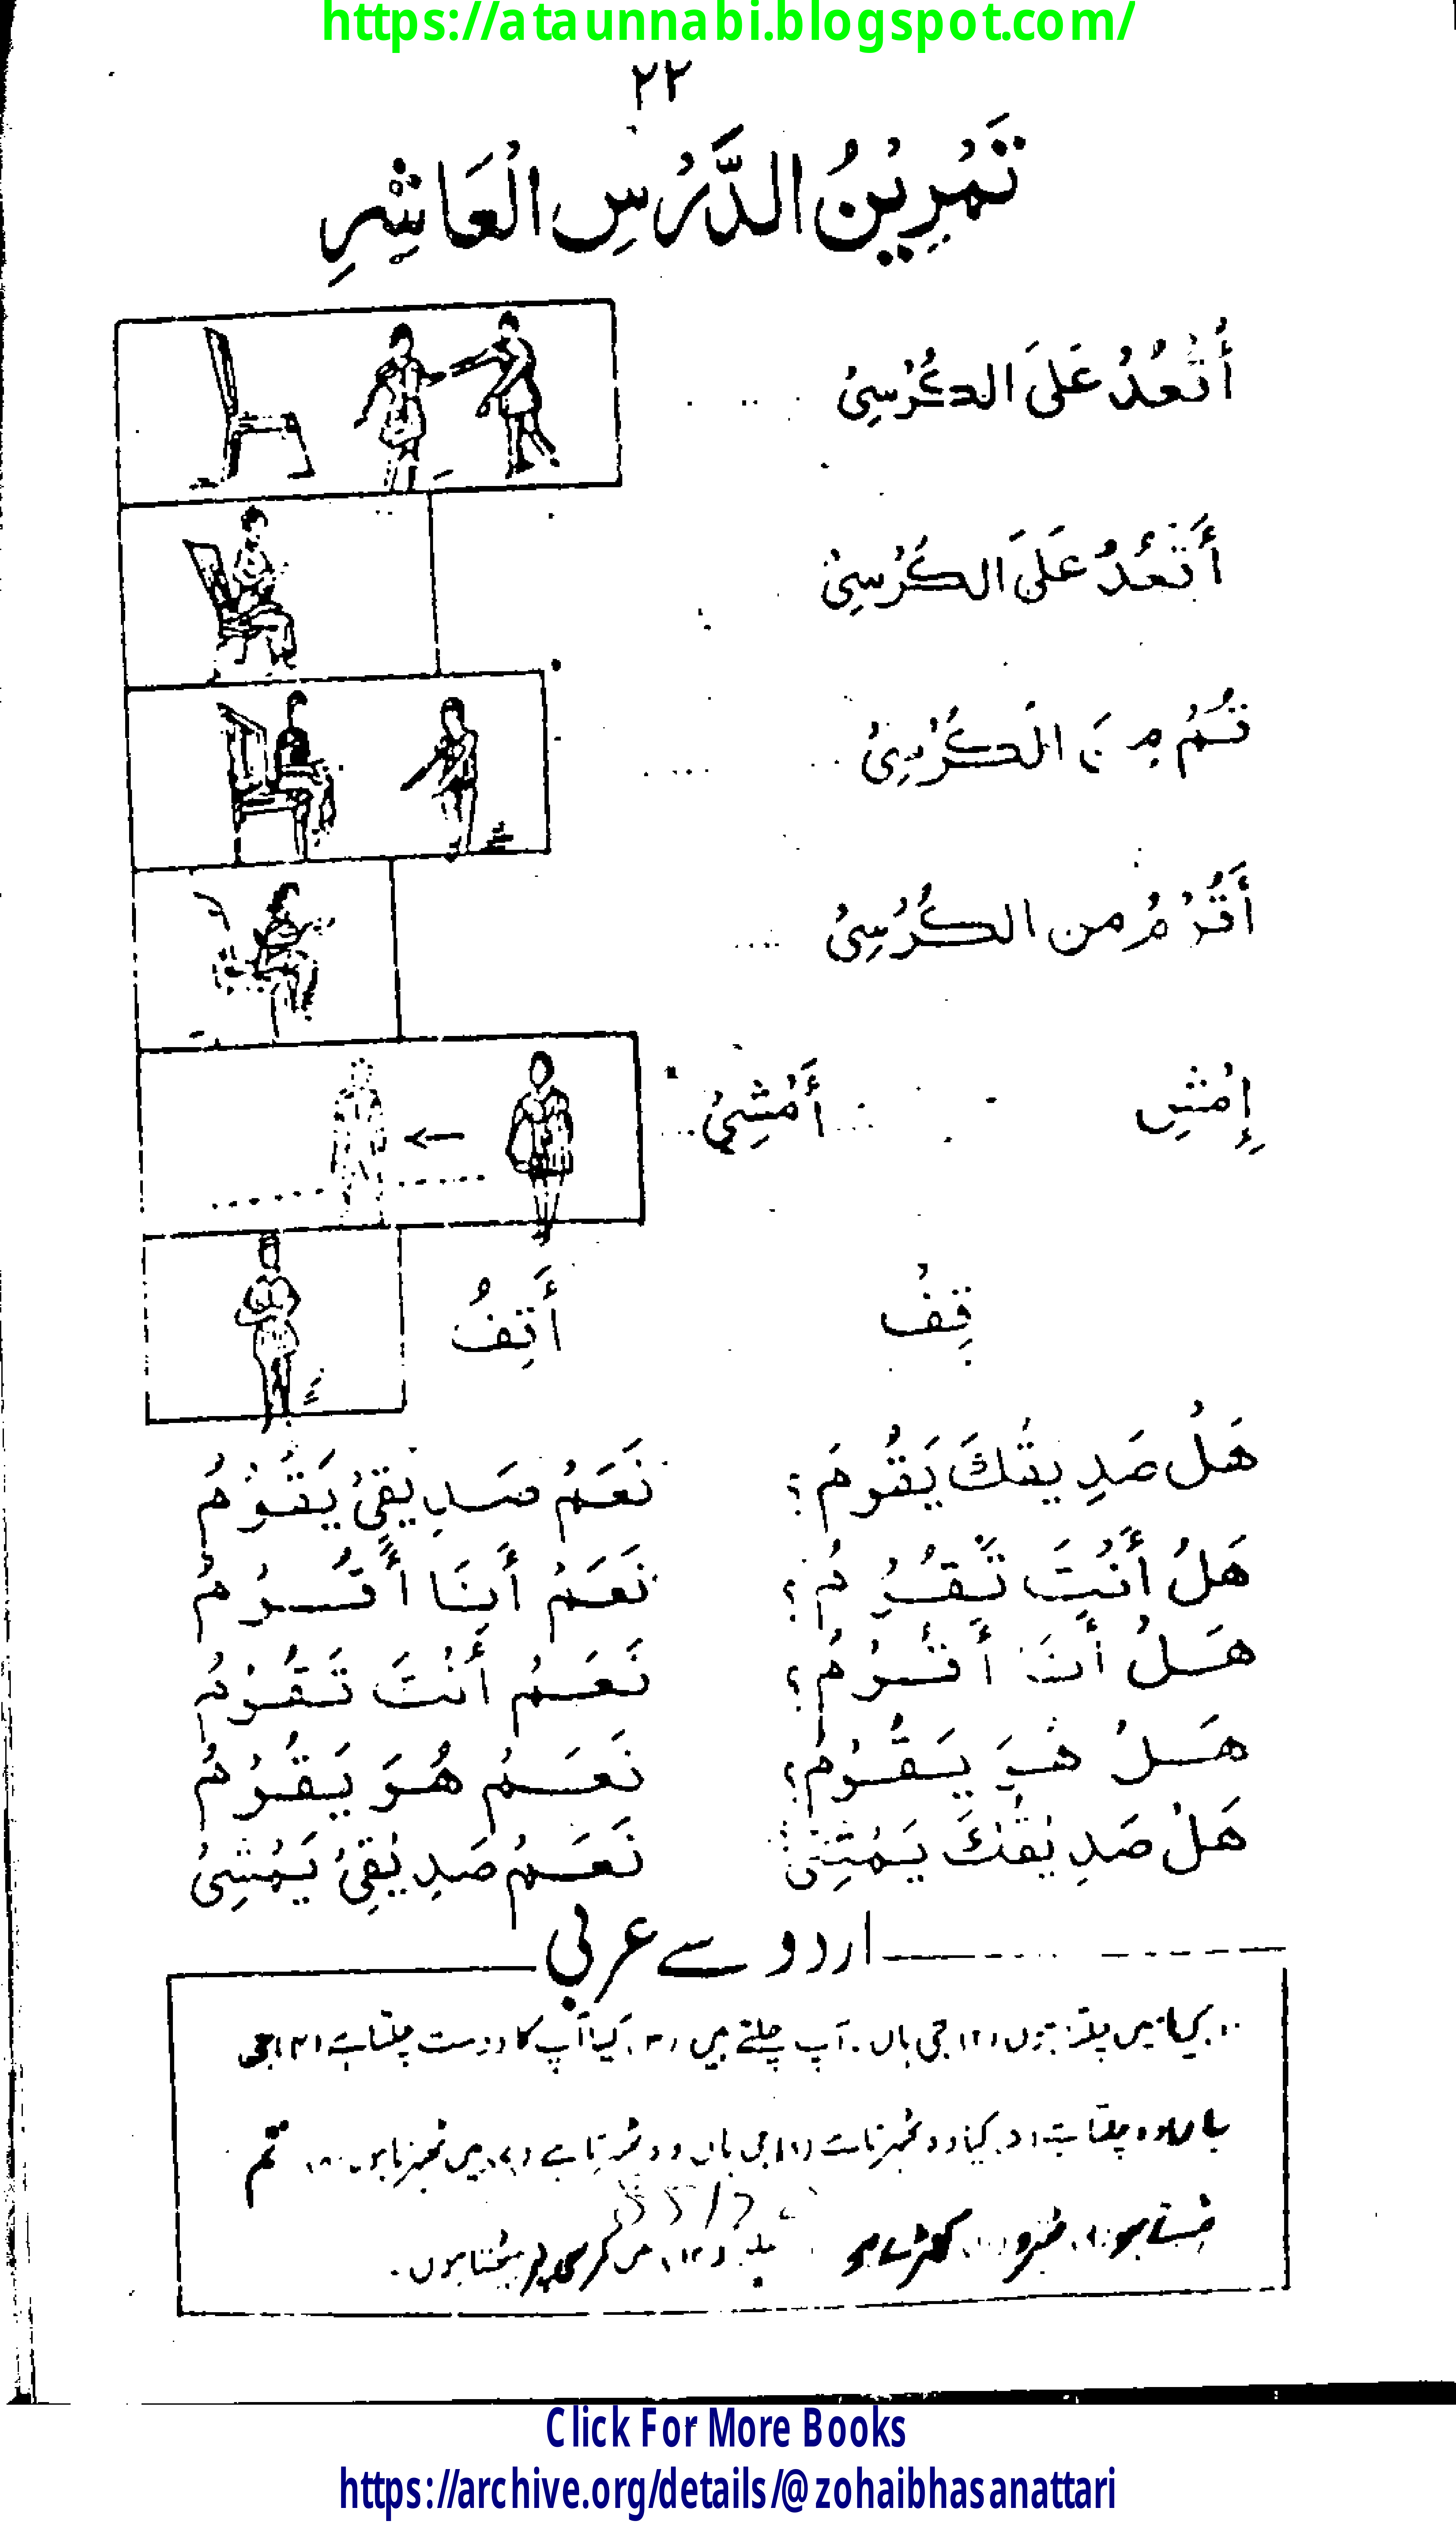 https://ataunnabi.blogspot.com/
٢٢
تَمْرِيْنُ الدَّرْسِ الْعَاشِرِ
أُقْعُدْ عَلَى الكُرْسِيْ
أَقْعُدُ عَلَى الكُرْسِيْ
قُمْ مِنَ الْكُرْسِيْ
أَقُوْمُ من الكُرْسِيْ
إِمْشِ أَمْشِيْ
قِفْ أَقِفُ
هَلْ صَدِيقُكَ يَقُومُ؟ نَعَمْ صَدِيقِيْ يَقُوْمُ
هَلْ أَنْتَ تَقُوْمُ؟ نَعَمْ أَنَا أَقُوْمُ
هَلْ أَنَا أَقُوْمُ؟ نَعَمْ أَنْتَ تَقُوْمُ
هَلْ هُوَ يَقُوْمُ؟ نَعَمْ هُوَ يَقُوْمُ
هَلْ صَدِيْقُكَ يَمْشِيْ نَعَمْ صَدِيْقِيْ يَمْشِيْ
اردو سے عربی
میں چلتا ہوں (٢) جی ہاں۔ آپ چلتے ہیں (٣) کیا آپ کا دوست چلتا ہے (٤) جی
ہاں وہ چلتا ہے (٥) کیا وہ ٹھہرتا ہے (٦) جی ہاں وہ ٹھہرتا ہے (٧) میں ٹھہرتا ہوں (٨) تم
ہو ٹھہرو کھڑے ہو (١٢) میں کرسی پر بیٹھتا ہوں۔
Click For More Books
https://archive.org/details/@zohaibhasanattari